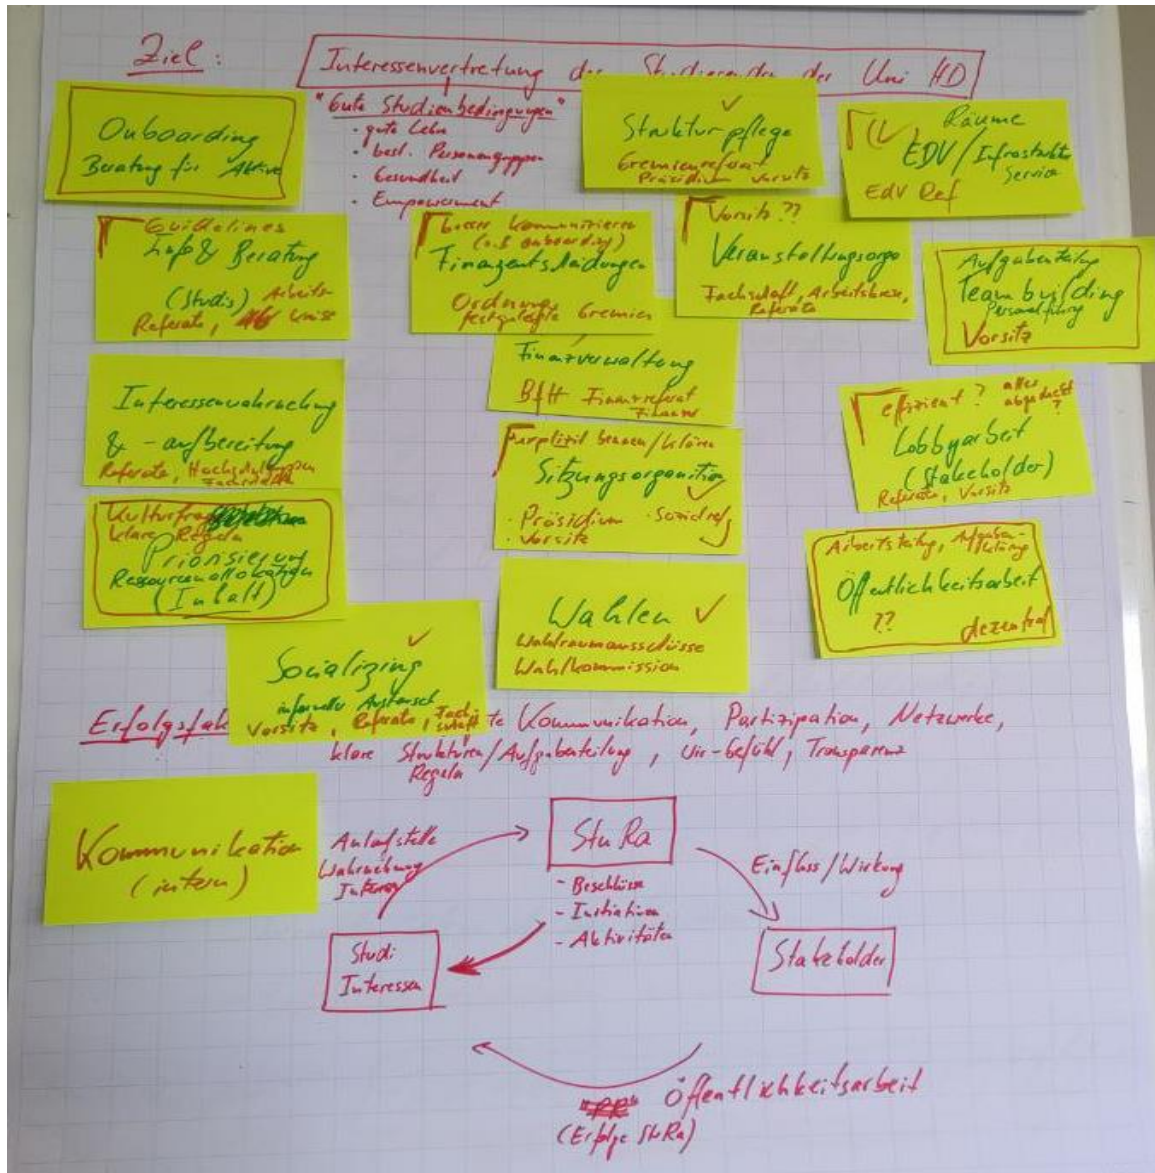 Ziel:
Interessenvertretung der Studierenden der Uni HD
"Gute Studienbedingungen"
· gute Lehre
· best. Personengruppen
· Gesundheit
· Empowerment
Onboarding
Beratung für Aktive
✓
Strukturpflege
Gremienreferat
Präsidium Vorsitz
Räume
EDV/Infrastruktur
Service
EDV Ref
Guidelines
Info & Beratung
(Studis) Arbeits-
Referate, kreise
besser kommunizieren
(z.B. onboarding)
Finanzentscheidungen
Ordnung,
festgelegte Gremien
Vorsitz ??
Veranstaltungsorga
Fachschaft, Arbeitskreise,
Referate
Aufgabenteilung
Teambuilding
Personalführung
Vorsitz
Finanzverwaltung
BfH Finanzreferat
Finanzer
Interessenwahrnehmung
& -aufbereitung
Referate, Hochschulgruppen
Fachschaften
explizit benennen/klären
Sitzungsorganisation
✓
· Präsidium · Sozialref
· Vorsitz
effizient? alles
abgedeckt
?
Lobbyarbeit
(Stakeholder)
Referate, Vorsitz
Kulturfrage
klare Regeln
Priorisierung
Ressourcenallokation
(Inhalt)
Arbeitsteilung, Aufgaben-
klärung
Öffentlichkeitsarbeit
?? dezentral
Wahlen ✓
Wahlraumausschüsse
Wahlkommission
✓
Socializing
informeller Austausch
Vorsitz, Referate, Fach-
schaft
Erfolgsfak te Kommunikation, Partizipation, Netzwerke,
klare Strukturen/Aufgabenteilung, Wir-Gefühl, Transparenz
Regeln
Kommunikation
(intern)
Anlaufstelle
Wahrnehmung
StuRa
- Beschlüsse
- Initiativen
- Aktivitäten
Einfluss/Wirkung
Studi
Interessen
Stakeholder
"PR" Öffentlichkeitsarbeit
(Erfolge StuRa)